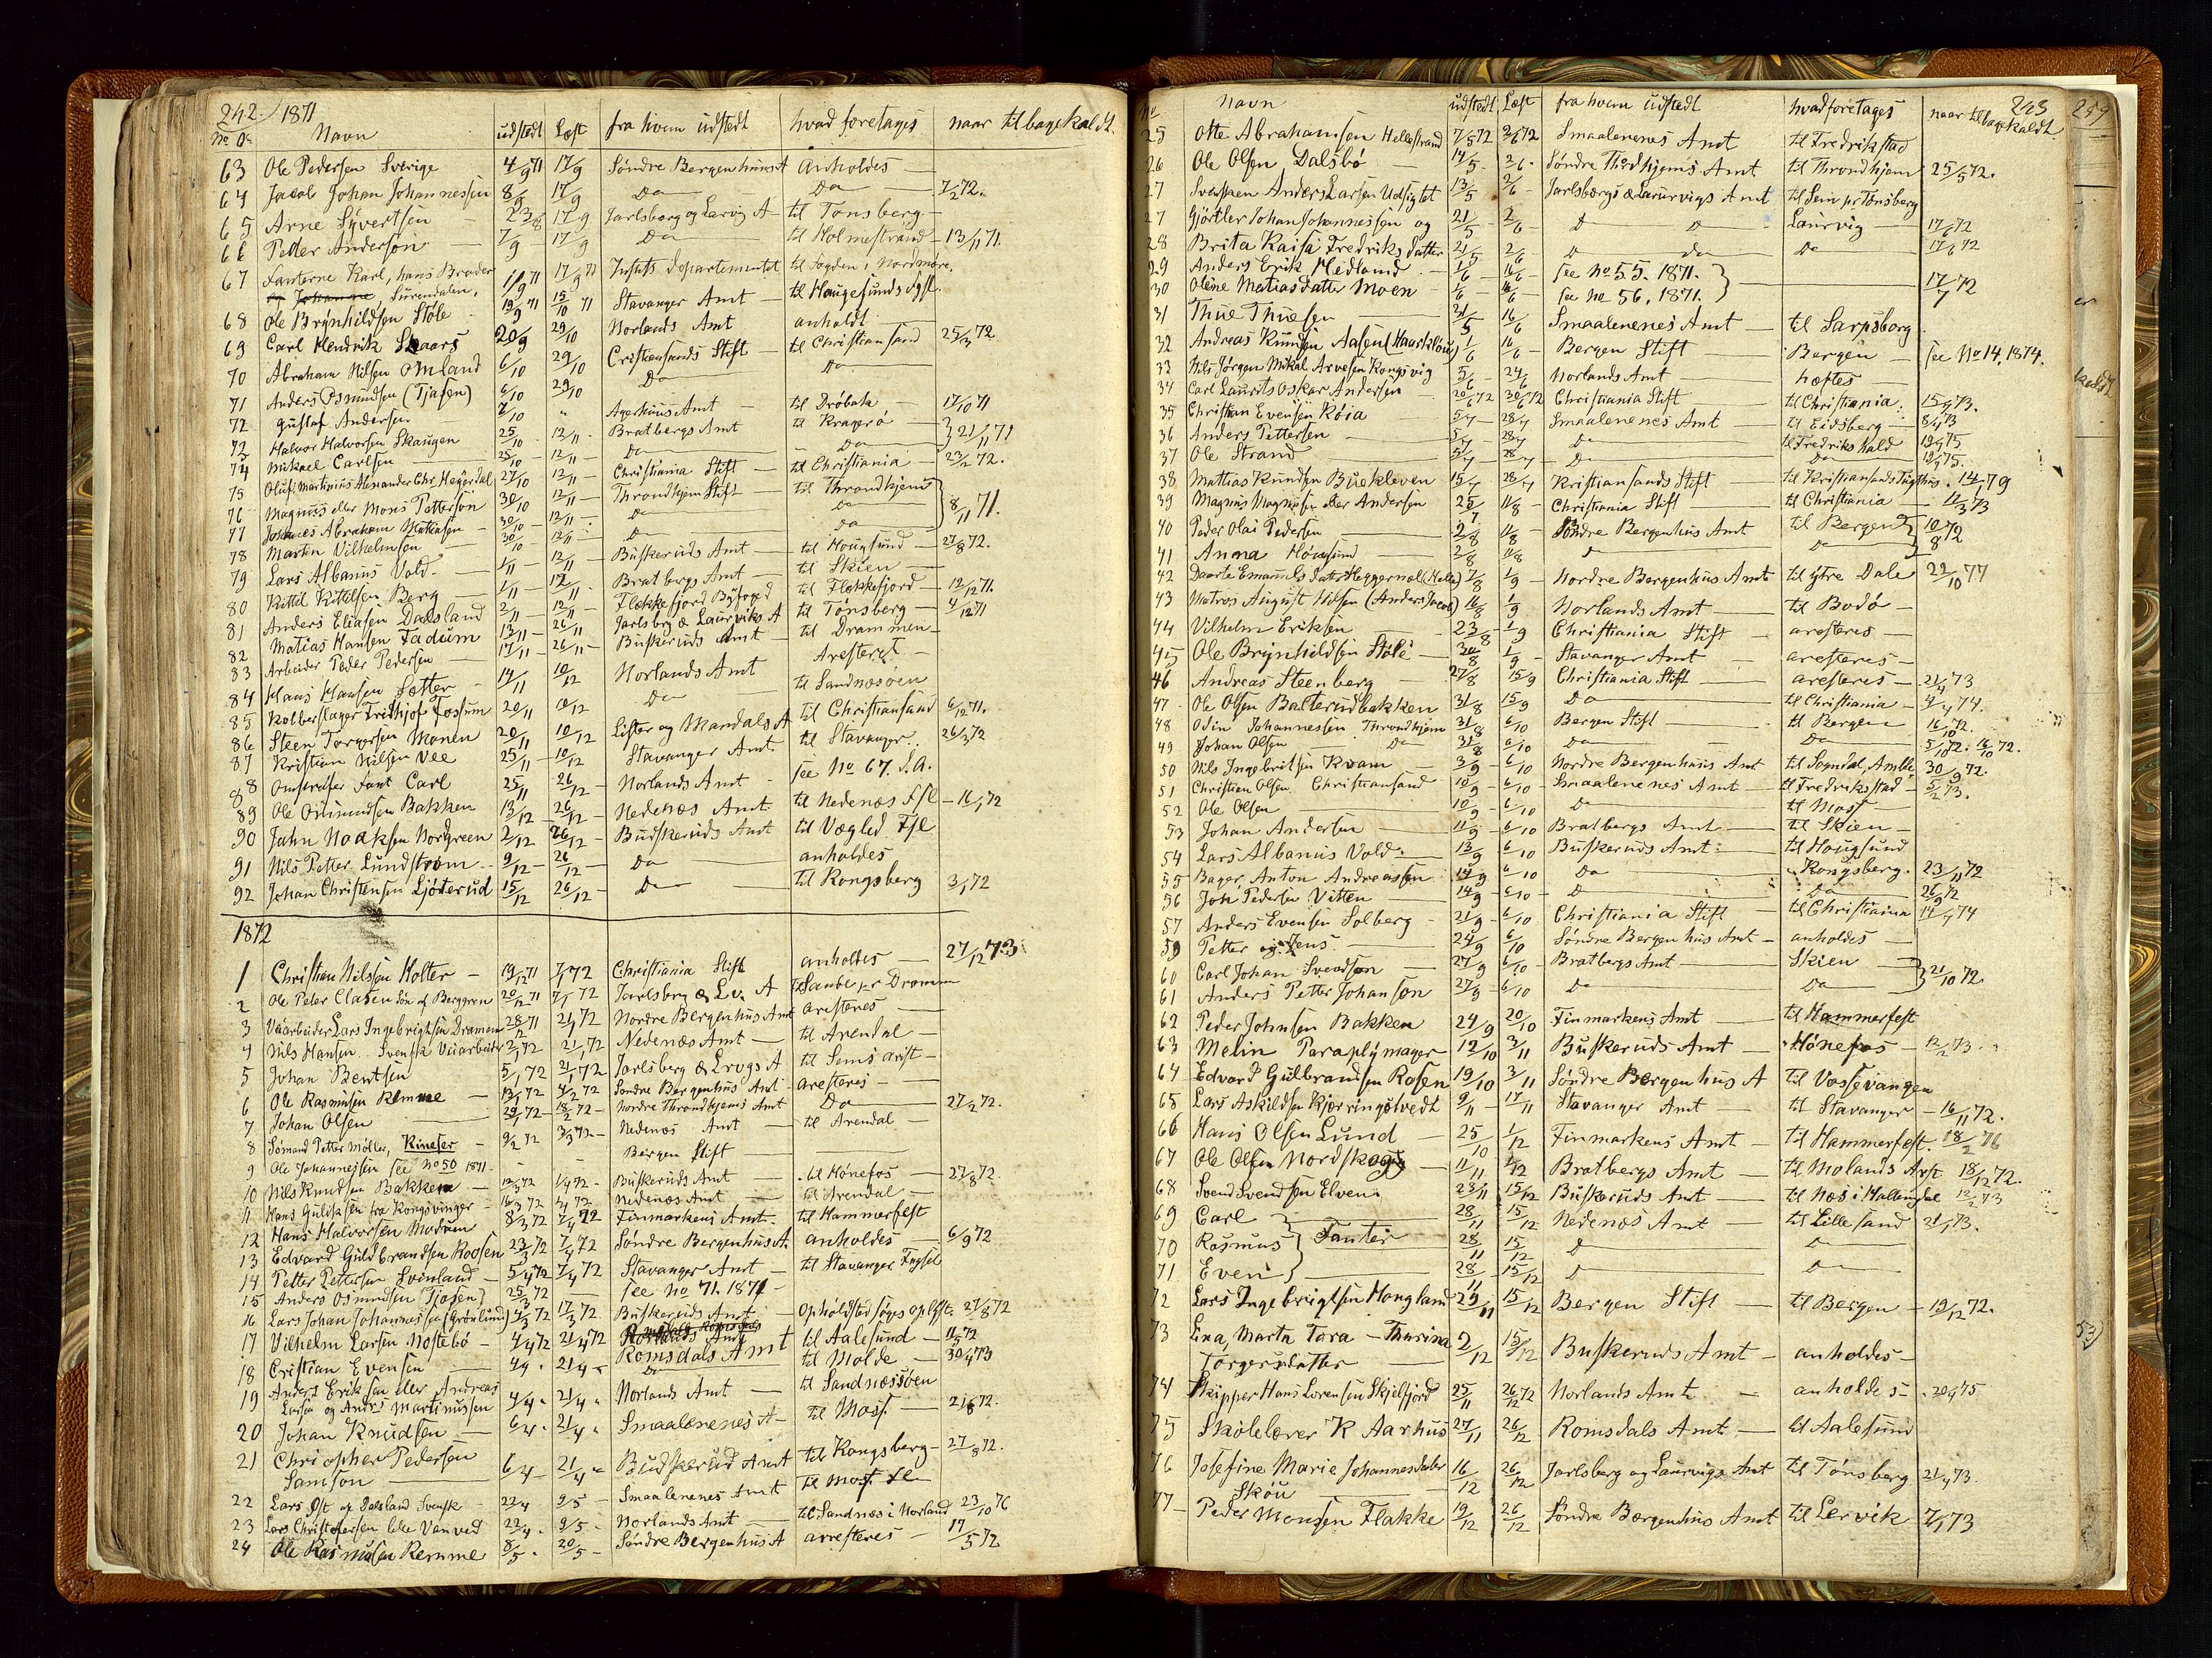 242. 1871
No. Navn udstedt Læst fra hvem udstedt hvad foretages naar tilbagekaldt.
63 Ole Pedersen Sverige 4/9 71 17/9 Søndre Bergenhus A anholdes —
64 Jacob Johan Johannessen 8/9 17/9 Do Do 7/2 72.
65 Arne Syvertsen — 23/8 17/9 Jarlsberg og Larvig A — til Tønsberg —
66 Peder Anderson — 7/9 17/9 Do til Holmestrand — 13/11 71.
67 Fanterne Karl, hans Broder 1/9 71 17/9 71 Justits Departementet til Fogden i Nordmøre.
og Johanne, Surendalen,
68 Ole Brynhildsen Støle 19/9 71 15/10 71 Stavanger Amt — til Haugesunds
69 Carl Hendrik Skaars 20/9 29/10 Norlands Amt anholdt —
70 Abraham Nilsen Omland 6/10 29/10 Cristiansands Stift — til Christiansand 25/3 72
71 Anders Osmundsen (Tjøsen) 6/10 29/10 Do Do
72 Gustaf Andersen 2/10 " Agerhuus Amt — til Drøbak — 17/10 71
73 Halvor Halvorsen Skaugen 25/10 12/11 Bratbergs Amt til Kragerø — } 21/11 71
74 Mikael Carlsen 25/10 12/11 Do Do
75 Oluf Martinius Alexander Chr. Heyerdal 27/10 12/11 Christiania Stift — til Christiania — 23/2 72.
76 Magnus eller Mons Petterson 30/10 12/11 Throndhjem Stift — til Throndhjem
77 Johannes Abraham Mathiasen 30/10 12/11 Do Do } 8/11 71.
78 Martin Vilhelmsen 30/10 12/11 Do Do
79 Lars Albanus Vold. 1/11 12/11 Buskeruds Amt — til Hougsund — 27/8 72.
80 Kittil Kittilsen Berg — 1/11 12/11 Bratbergs Amt — til Skien —
81 Anders Eliasen Dadsland 2/11 12/11 Flekkefjord Byfoged til Flekkefjord — 12/12 71.
82 Matias Hansen Fadum 13/11 26/11 Jarlsbrg & Laurviks A til Tønsberg — 4/12 71
83 Arbeider Peder Pedersen 17/11 26/11 Buskeruds Amt — til Drammen —
84 Hans Hansen Sætter 14/11 10/12 Norlands Amt Aresteret —
85 Kolberslager Fridhjof Fossum 20/11 10/12 Do til Sandnæsøen
86 Steen Torgersen Monen 20/11 10/12 Lister og Mandals A til Christiansand 6/12 71.
87 Kristian Nilsen Vee 25/11 10/12 Stavanger Amt. til Stavanger. 26/3 72
88 Omstreifer Fant Carl 25/11 26/12 Norlands Amt see No 67. d.A.
89 Ole Omundsen Bakken 13/12 26/12 Nedenæs Amt. til Nedenæs Fsl — 16/1 72
90 Jahn Noaksen Nordgreen 2/12 26/12 Budskeruds Amt til Vægled. Fsl
91 Nils Petter Lundstrøm 9/12 26/12 Do anholdes
92 Johan Christensen Ljøterud 15/12 26/12 Do til Kongsberg 3/1 72
1872
1 Christian Nilssen Holter — 19/12 71 7/1 72 Christiania Stift anholdes — 27/12 73
2 Ole Peter Clasen Søn af Berggren 20/12 71 7/1 72 Jarlsbrg & Lv. A til Sande pr Drammen
3 Vaiarbeider Lars Ingebrigtsen Dramen 28/12 71 21/1 72 Nordre Bergenhus Amt aresteres —
4 Nils Hansen. Svensk Veiarbeider 2/1 72 21/1 72 Nedenæs Amt — til Arendal —
5 Johan Bentsen 5/1 72 21/1 72 Jarlsberg & Lrvgs A til Sems arist —
6 Ole Rasmusen Remme 13/1 72 4/2 72 Søndre Bergenhus Amt — aresteres —
7 Johan Olsen 29/1 72 18/2 72 Nordre Throndhjems Amt Do 27/2 72.
8 Sømand Petter Møller, Kineser 9/2 72 3/3 72 Nedenæs Amt — til Arendal —
9 Ole Johannessen see No 50 1871. Bergen Stift —
10 Nils Knudsen Bakken 12/3 72 1/4 72 Buskeruds Amt — til Hønefos — 27/8 72.
11 Hans Guliksen fra Kongsvinger 16/3 72 4/4 72 Nedenæs Amt — til Arendal —
12 Hans Halvorsen Modum 8/3 72 7/4 72 Finmarkens Amt. til Hammerfest
13 Edvard Guldbrandsen Roosen 23/3 72 7/4 72 Søndre Bergenhus A. anholdes — 6/9 72
14 Petter Pettersen Svinland — 5/4 72 7/4 72 Stavanger Amt — til Stavanger Fngsel
15 Anders Osmundsen (Tjøsen) 25/3 72 — see No 71. 1871 —
16 Lars Johan Johannessen (Grønlund) 4/3 72 17/3 72 Buskeruds Amt — Opholdsted søges oplyst 27/8 72
17 Vilhelm Larsen Mostebø — 4/4 72 21/4 72 Romsdals Amt til Aalesund — 11/5 72
18 Cristian Evensen 4/4 " 21/4 " Do til Molde — 30/4 73
19 Anders Eriksen eller Andreas 4/4 " 21/4 " Norlands Amt — til Sandnæssøen
Larsen og Anders Martinussen
20 Johan Knudsen — 6/4 " 21/4 " Smaalenenes A — til Moss. — 21/8 72.
21 Christopher Pedersen 6/4 21/4 " Budskerud Amt til Kongsberg — 27/8 72.
Samson
22 Lars Ost. og Dalsland Svensk — 22/4 9/5 — Smaalenenes Amt til Moss
23 Lars Christofersen lille Vanved 22/4 9/5 — Norlands Amt — til Sandnæs i Norland 23/10 76
24 Ole Rasmusen Remme 8/5 20/5 — Søndre Bergenhus A arresteres — 17/5 72
243
No Navn udstedt Læst fra hvem udstedt hvad foretages naar tilbagekaldt
25 Otte Abrahamsen Hellestrand 7/5 72 2/6 72 Smaalenenes Amt til Fredrikstad
26 Ole Olsen Dalsbø 14/5 2/6 Søndre Thrdhjems Amt til Throndhjem 25/5 72.
27 Svensken Anders Larsen Udsigtet 13/5 2/6 Jarlsbergs & Laurvigs Amt til Sem pr Tønsberg
27 Gjørtler Johan Johannessen og 21/5 2/6 D D Laurvig — 17/6 72
28 Brita Kaisa Fredriksdatter 21/5 2/6 D Do Do 17/6 72
29 Anders Erik Hedlund 1/6 16/6 see No 55. 1871.
30 Oline Matiasdatter Moen 1/6 16/6 see No 56. 1871. } 17/7 72
31 Thue Thuesen 21/5 16/6 Smaalenenes Amt — til Sarpsborg
32 Andreas Knudsen Aasen (Haarklou) 1/6 16/6 Bergen Stift — Bergen — see No 14. 1874.
33 Nils Jørgen Mikal Arvesen Kongsvig 5/6 24/6 Norlands Amt — hæftes —
34 Carl Laurits Oskar Andersen 20/6 72 30/6 72 Christiania Stift — til Christiania: 15/9 73.
35 Christian Evensen Røia 5/7 28/7 Smaalenenes Amt — til Eidsberg — 8/4 73
36 Anders Pettersen 5/7 28/7 Do til Fredrikshald 19/9 75
37 Ole Strand 5/7 28/7 Do Do 19/9 75.
38 Mathias Knudsen Buekleven 15/7 28/7 Kristiansands Stift til Kristiansands Tugthus. 14/1 79
39 Magnus Magnusen eller Andersen 25/7 11/8 Christiania Stift — til Christiania — 11/3 73
40 Peder Olai Pedersen 2/8 11/8 Søndre Bergenhus Amt til Bergen } 10/8 72
41 Anna Høiesund 2/8 11/8 D Do
42 Daarte Emanuels dater Heggernæl (Helle) 7/8 1/9 Nordre Bergenhus Amt til Ytre Dale 22/10 77
43 Matros August Nilsen (Anders Jacob) 16/8 1/9 Norlands Amt — til Bodø —
44 Vilhelm Eriksen 23/8 1/9 Christiania Stift — aresteres —
45 Ole Brynhildsen Støle 30/8 1/9 Stavanger Amt — aresteres —
46 Andreas Steenberg 27/8 15/9 Christiania Stift — aresteres — 21/4 73
47 Ole Olsen Balterudbakken 31/8 15/9 Do til Christiania — 9/4 74.
48 Odin Johannessen Throndhjem 31/8 6/10 Bergen Stift — til Bergen 16/10 72.
49 Johan Olsen Do 31/8 6/10 Do Do 5/10 72. 16/10 72.
50 Nils Ingebritsen Kvam 3/9 6/10 Nordre Bergenhuus Amt til Sogndal, Amble 30/9 72.
51 Christian Olsen. Christiansand 10/9 6/10 Smaalenenes Amt — til Fredriksstad — 5/2 73.
52 Ole Olsen 10/9 6/10 D til Moss
53 Johan Andersen 11/9 6/10 Bratbergs Amt — til Skien —
54 Lars Albanus Vold 13/9 6/10 Buskeruds Amt — til Hougsund
55 Bager, Anton Andreassen 14/9 6/10 Do Kongsberg. 23/11 72
56 Joh Pedersen Vitten 14/9 6/10 D Do 26/9 72
57 Anders Evensen Solberg 21/9 6/10 Christiania Stift — til Christiania 14/7 74
59 Petter og Jens 24/9 6/10 Søndre Bergenhus Amt — anholdes —
60 Carl Johan Svendson 27/9 6/10 Bratbergs Amt — Skien — } 21/10 72.
61 Anders Petter Johanson 27/9 6/10 Do Do
62 Peder Johnsen Bakken 24/9 20/10 Finmarkens Amt — til Hammerfest
63 Melin Paraplymager 12/10 3/11 Buskeruds Amt — Hønefos — 12/2 73.
64 Edvard Gulbrandsen Rosen 19/10 3/11 Søndre Bergenhus A til Vossevangen
65 Lars Askildsen Kjærringstvedt 9/11 17/11 Stavanger Amt — til Stavanger — 16/11 72.
66 Hans Olsen Lund — 25/10 1/12 Finmarkens Amt — til Hammerfest. 18/2 76
67 Ole Olsen Nordskog 11/11 1/12 Bratbergs Amt — til Molands Arst 18/12 72.
68 Svend Svendsen Elven. 23/11 15/12 Buskeruds Amt — til Næs i Hallengdal 12/2 73
69 Carl 28/11 15/12 Nedenæs Amt — til Lillesand 21/1 73.
70 Rasmus } Fanter 28/11 15/12 D Do
71 Even 28/11 15/12 D Do
72 Lars Ingebrigtsen Hougland 29/11 15/12 Bergen Stift — til Bergen — 19/12 72.
73 Lina, Marta Tora — Thurina 2/12 15/12 Buskeruds Amt — anholdes —
Torgersdatter
74 Skipper Hans Lorensen Skjelfjord 25/11 26/12 72 Norlands Amt — anholdes — 20/9 75
75 Skolelærer K Aarhus 27/11 26/12 Romsdals Amt — til Aalesund
76 Josefine Marie Johannesdater 16/12 26/12 Jarlsberg og Laurvigs Amt til Tønsberg 21/4 73.
Skou
77 — Peder Monsen Flakke 19/12 26/12 Søndre Bergenhus Amt til Lervik 7/1 73
259